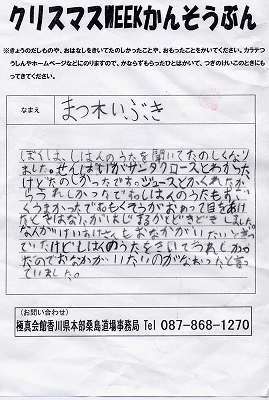 クリスマスWEEKかんそうぶん
※きょうのだしものや、おはなしをきいてたのしかったことや、おもったことをかいてください。カラテつ
うしんやホームページなどにのりますので、かならずもらったひとはかいて、つぎのけいこのときにも
ってきてください。
なまえ
まつ木いぶき
ぼくは、しはんのうたを聞いてたのしくなり
ました。せんぱいがサンタクロースとわかった
けどたのしかったですジュースとかくれたか
らうれしかったです。しはんのうたもすご
くうまかったです。もくそうがおわって目をあけ
たときはなにがはじまるかどきどきしました。
なおがないたいと言っ
ていたけどしはんのうたをきいてうれしかっ
たのでおなかがいたいのがなおったと言っ
ていました。
(お問い合わせ)
極真会館香川県本部桑島道場事務局 Tel 087-868-1270